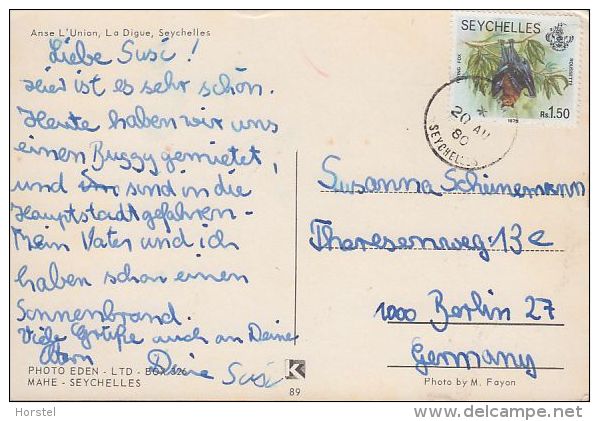 Anse L'Union, La Digue, Seychelles
Liebe Susi!
Hier ist es sehr schön.
Heute haben wir uns
einen Buggy gemietet,
und sind in die
Hauptstadt gefahren.
Mein Vater und ich
haben schon einen
Sonnenbrand.
Viele Grüße auch an Deine
Eltern
Deine Susi
PHOTO EDEN - LTD - BOX 326
MAHE - SEYCHELLES
K
89
SEYCHELLES
FLYING FOX
ROUSSETTE
Rs.1.50
1978
20 AU
80
SEYCHELLES
Susanna Scheinemann
Theresenweg 13c
1000 Berlin 27
Germany
Photo by M. Fayon
Horstel
www.delcampe.net